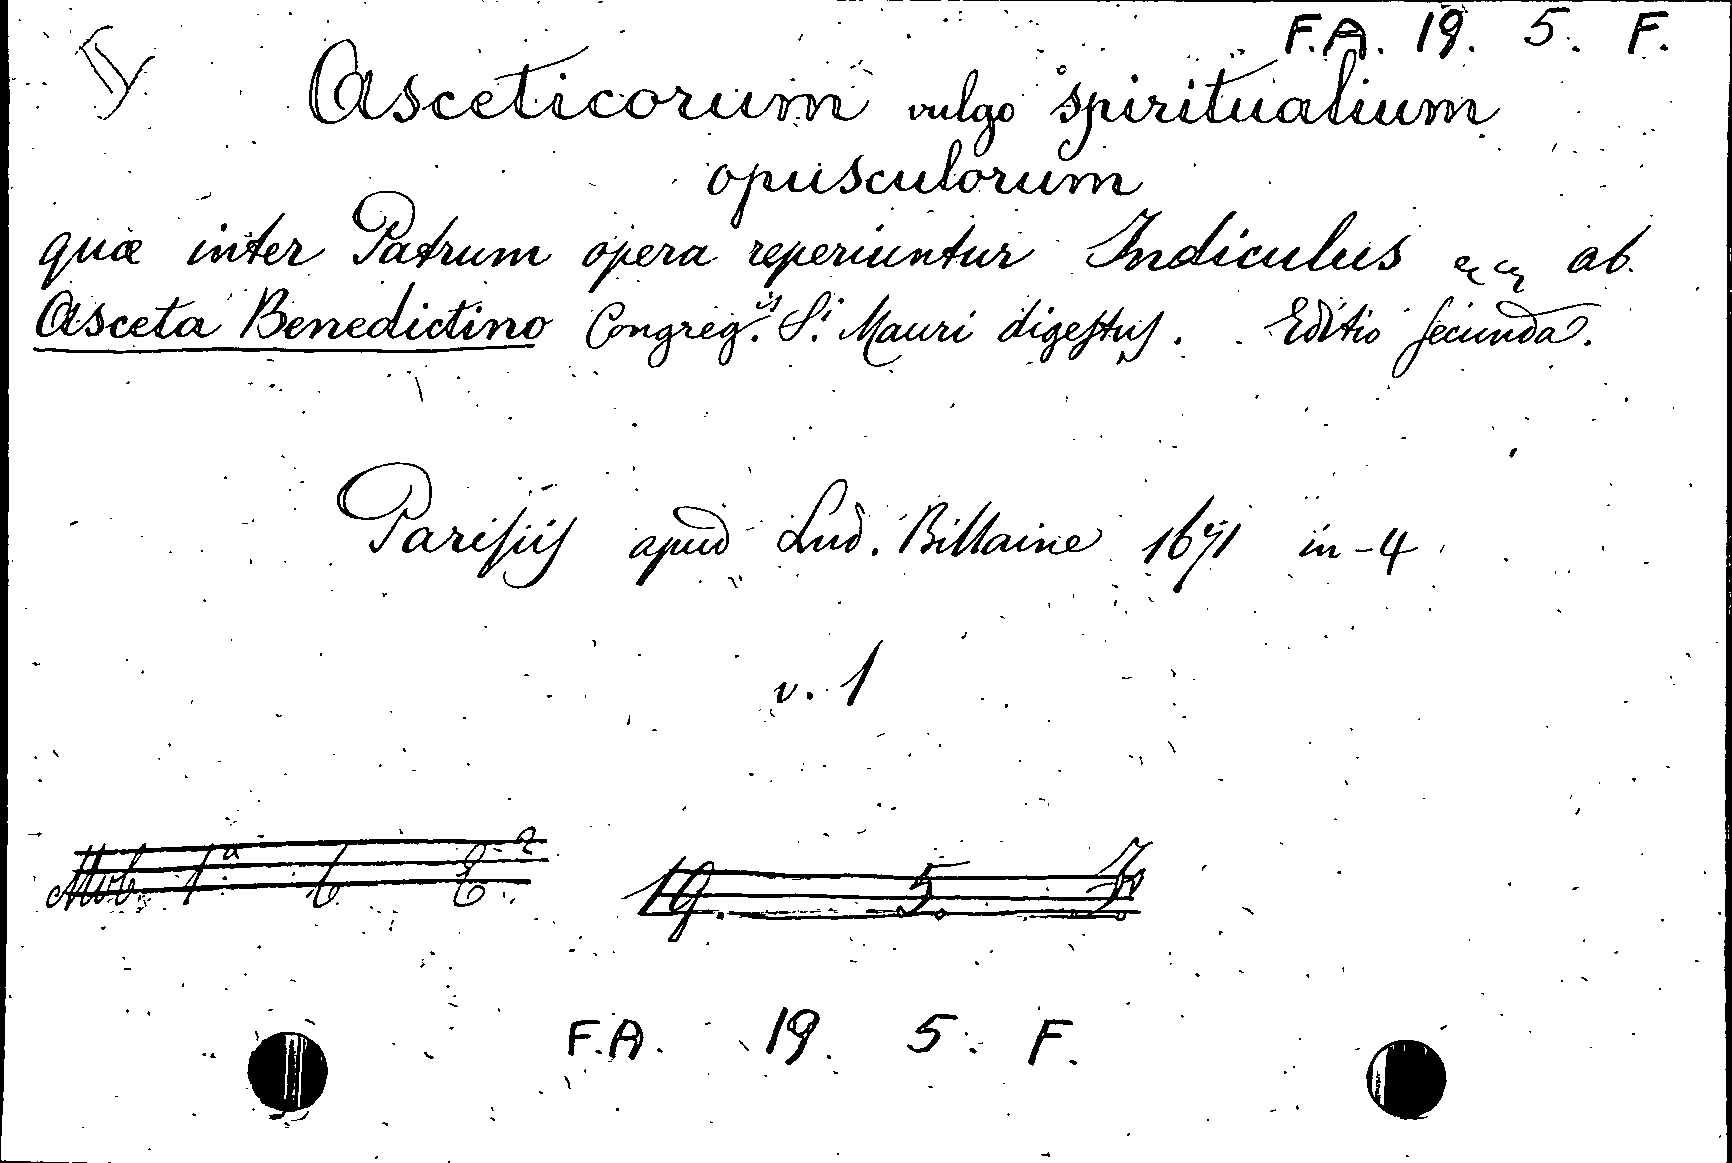 F.A. 19. 5. F.
Asceticorum vulgo spiritualium
opusculorum
quæ inter Patrum opera reperiuntur Indiculus ab
Asceta Benedictino Congreg.is S.i Mauri digestus. Editio secunda.
Parisiis apud Lud. Billaine 1671 in-4
v. 1
19. 5. F.
F.A. 19. 5. F.